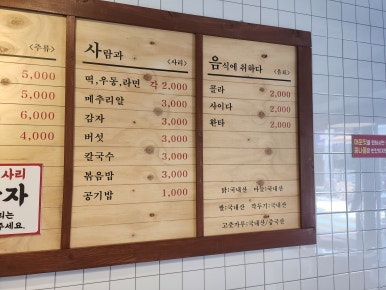 <주류>
5,000
5,000
6,000
4,000
사람과 <사리>
떡,우동,라면 각 2,000
메추리알 3,000
감자 3,000
버섯 3,000
칼국수 3,000
볶음밥 3,000
공기밥 1,000
음식에 취하다 <음료>
콜라 2,000
사이다 2,000
환타 2,000
닭:국내산 마늘:국내산
쌀:국내산 깍두기:국내산
고춧가루:국내산/중국산
사리
자
리는
주세요.